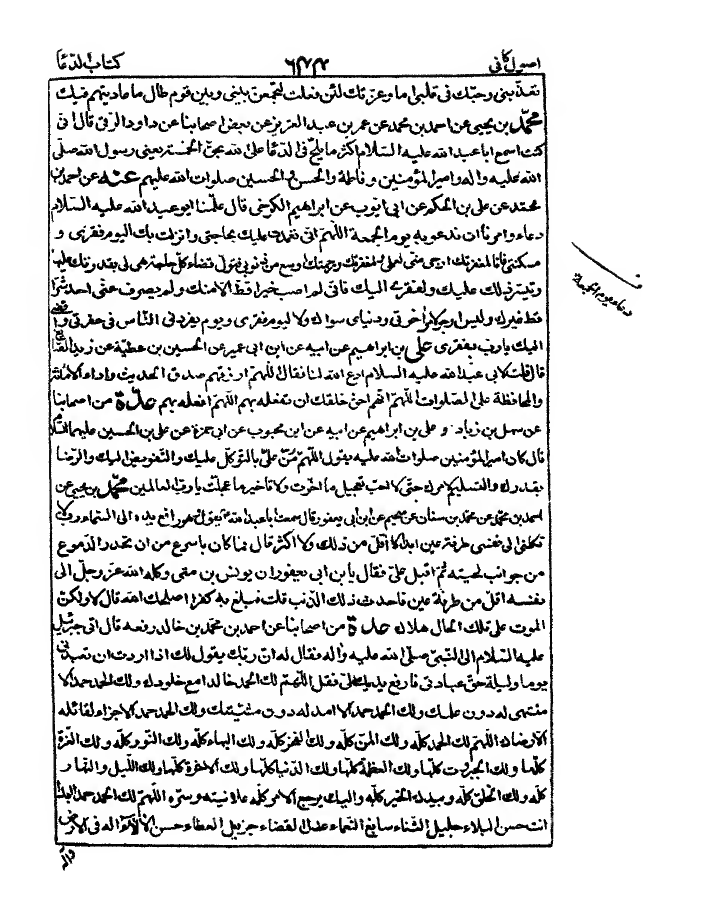 اصول کافی
۶۴۴
کتاب الدعا
تعذبنی وحبک فی قلبی اما وعزتک لئن فعلت لتجمعن بینی وبین قوم طال ما عادیتهم فیک
محمد بن یحیی عن احمد بن محمد عن عمر بن عبد العزیز عن بعض اصحابنا عن داود الرقی قال انی
کنت اسمع ابا عبد الله علیه السلام اکثر ما یلح فی الدعا علی الله بحق الخمسة یعنی رسول الله صلی
الله علیه واله وامیر المؤمنین وفاطمة والحسن والحسین صلوات الله علیهم عنه عن احمد بن
محمد عن علی بن الحکم عن ابی ایوب عن ابراهیم الکرخی قال علمنا ابو عبد الله علیه السلام
دعاء وامرنا ان ندعو به یوم الجمعة اللهم انی تعمدت علیک بحاجتی وانزلت بک الیوم فقری و
مسکنتی فانا لمغفرتک ارجی منی لعملی ولمغفرتک ورحمتک اوسع من ذنوبی فتول قضاء کل حاجة هی لی بقدرتک علیها
وتیسر ذلک علیک ولفقری الیک فانی لم اصب خیرا قط الا منک ولم یصرف عنی احد شرا
قط غیرک ولیس ارجو لاخرتی ودنیای سواک ولا لیوم فقری ویوم یفردنی الناس فی حفرتی وا
الیک یا رب بفقری علی بن ابراهیم عن ابیه عن ابن ابی عمیر عن الحسین بن عطیة عن زید
قال قلت لابی عبد الله علیه السلام ادع الله لنا فقال اللهم ارزقهم صدق الحدیث واداء الامانة
والمحافظة علی الصلوات اللهم انهم احق خلقک ان تفعله بهم اللهم افعله بهم عدة من اصحابنا
عن سهل بن زیاد و علی بن ابراهیم عن ابیه عن ابن محبوب عن ابی حمزة عن علی بن الحسین علیهما السلام
قال کان امیر المؤمنین صلوات الله علیه یقول اللهم من علی بالتوکل علیک والتفویض الیک والرضا
بقدرک والتسلیم لامرک حتی لا احب تعجیل ما اخرت ولا تاخیر ما عجلت یا رب العالمین محمد بن یحیی عن
احمد بن محمد عن محمد بن سنان عن سجیم عن ابن ابی یعفور قال سمعت ابا عبد الله یقول وهو رافع یده الی السماء رب لا
تکلنی الی نفسی طرفة عین ابدا لا اقل من ذلک ولا اکثر قال فما کان باسرع من ان تحدر الدموع
من جوانب لحیته ثم اقبل علی فقال یا بن ابی یعفور ان یونس بن متی وکله الله عز وجل الی
نفسه اقل من طرفة عین فاحدث ذلک الذنب قلت فبلغ به کفرا اصلحک الله قال لا ولکن
الموت علی تلک الحال هلاک عدة من اصحابنا عن احمد بن محمد بن خالد رفعه قال اتی جبرئیل
علیه السلام الی النبی صلی الله علیه واله فقال له ان ربک یقول لک اذا اردت ان تعبدنی
یوما ولیلة حق عبادتی فارفع یدیک الی وقل اللهم لک الحمد حمدا خالدا مع خلودک ولک الحمد حمدا لا
منتهی له دون علمک ولک الحمد حمدا لا امد له دون مشیتک ولک الحمد حمدا لا جزاء لقائله
الا رضاک اللهم لک الحمد کله ولک المن کله ولک الفخر کله ولک البهاء کله ولک النور کله ولک العزة
کلها ولک الجبروت کلها ولک العظمة کلها ولک الدنیا کلها ولک الاخرة کلها ولک اللیل والنهار
کله ولک الخلق کله وبیدک الخیر کله والیک یرجع الامر کله علانیته وسره اللهم لک الحمد حمدا ابدا
انت حسن البلاء جلیل الثناء سابغ النعماء عدل القضاء جزیل العطاء حسن الالاء اله فی الارض
واله
دعاء یوم الجمعة